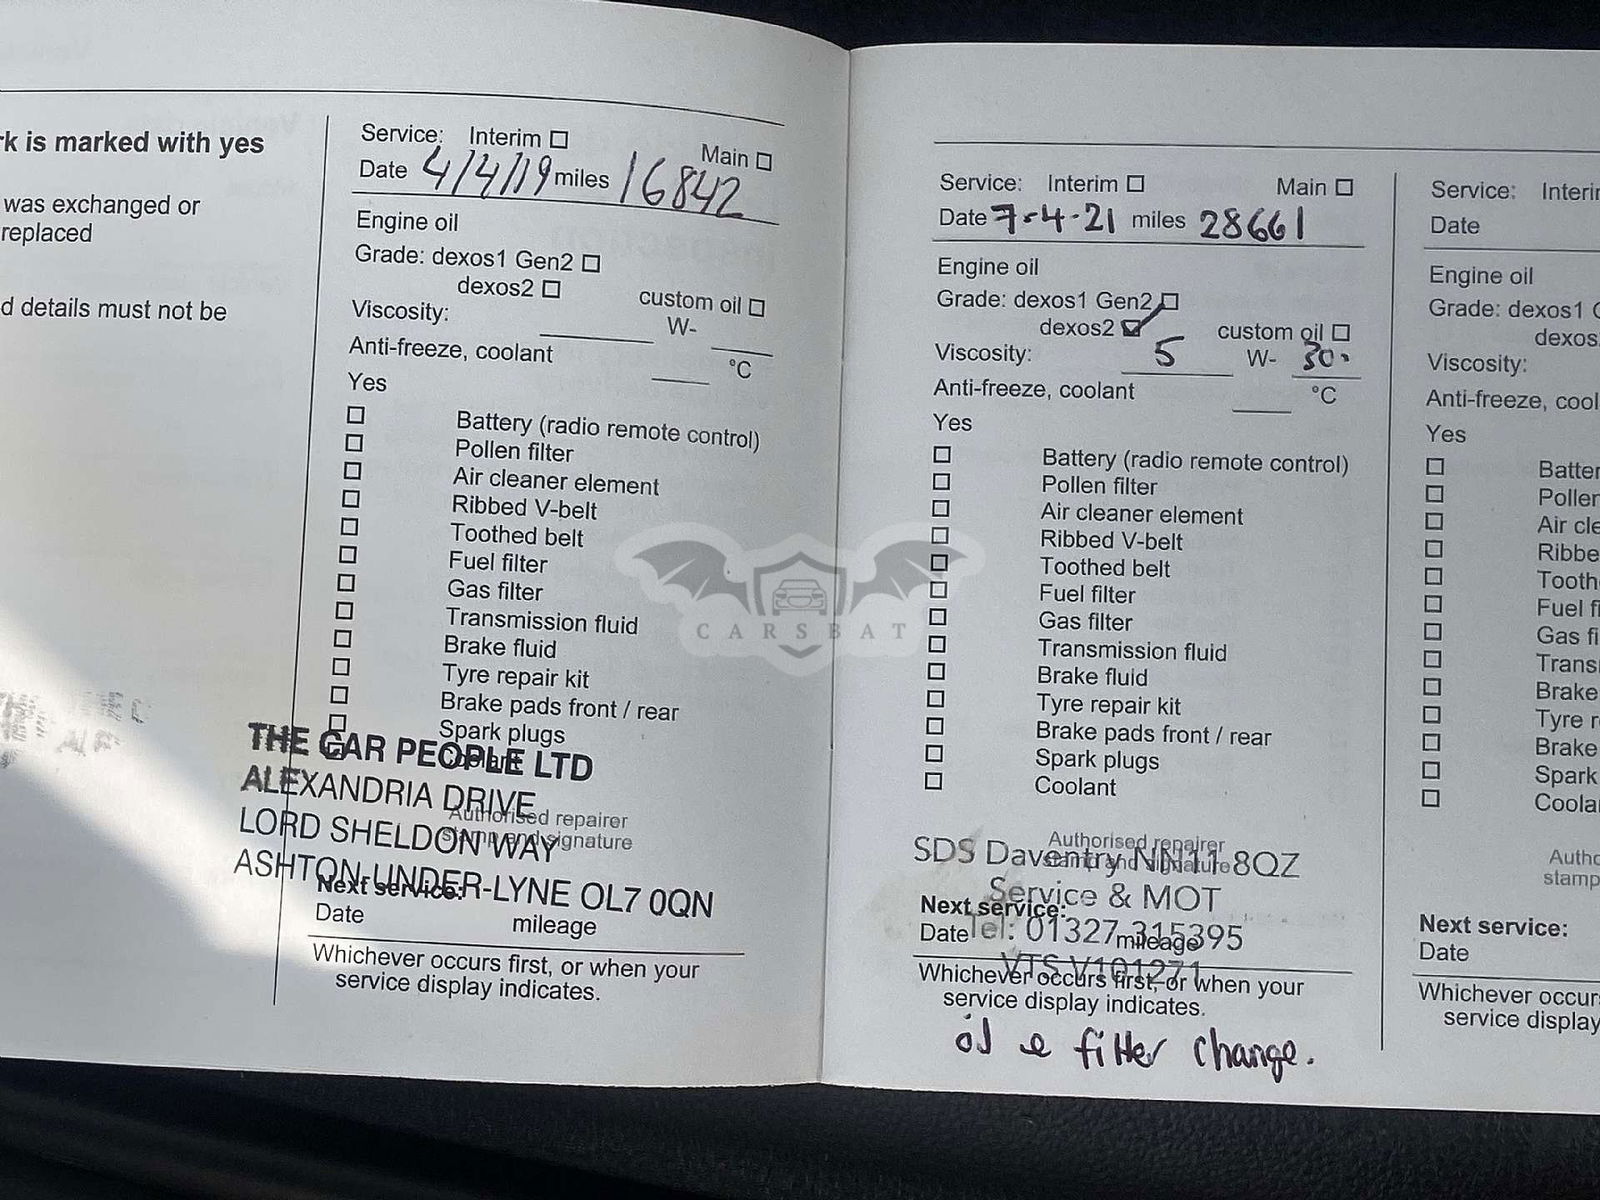 rk is marked with yes
was exchanged or
replaced
d details must not be
Service: Interim Main
Date 4/4/19 miles 16842
Engine oil
Grade: dexos1 Gen2
dexos2 custom oil
Viscosity: W-
Anti-freeze, coolant °C
Yes
Battery (radio remote control)
Pollen filter
Air cleaner element
Ribbed V-belt
Toothed belt
Fuel filter
Gas filter
Transmission fluid
Brake fluid
Tyre repair kit
Brake pads front / rear
Spark plugs
Coolant
THE CAR PEOPLE LTD
ALEXANDRIA DRIVE
LORD SHELDON WAY
ASHTON-UNDER-LYNE OL7 0QN
Authorised repairer
stamp and signature
Next service:
Date mileage
Whichever occurs first, or when your
service display indicates.
Service: Interim Main
Date 7-4-21 miles 28661
Engine oil
Grade: dexos1 Gen2
dexos2 custom oil
Viscosity: 5 W- 30.
Anti-freeze, coolant °C
Yes
Battery (radio remote control)
Pollen filter
Air cleaner element
Ribbed V-belt
Toothed belt
Fuel filter
Gas filter
Transmission fluid
Brake fluid
Tyre repair kit
Brake pads front / rear
Spark plugs
Coolant
Authorised repairer
stamp and signature
SDS Daventry NN11 8QZ
Service & MOT
Tel: 01327 315395
VTS V101271
Next service:
Date mileage
Whichever occurs first, or when your
service display indicates.
oil e filter change.
Service: Interi
Date
Engine oil
Grade: dexos1 G
dexos
Viscosity:
Anti-freeze, cool
Yes
Batter
Pollen
Air cle
Ribbe
Tooth
Fuel fi
Gas fi
Trans
Brake
Tyre r
Brake
Spark
Coola
Autho
stamp
Next service:
Date
Whichever occur
service display
CARSBAT